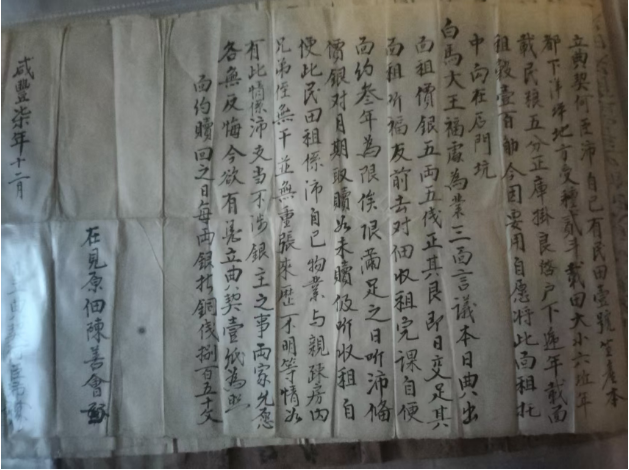 立典契何亞沛自己有民田壹號坐產本
都下洋洋地方受種貳斗載田大小六坵年
載民粮五分正庫掛良 户下遞年載面
租穀壹百觔今因要用自愿將此面租托
中向在石門坑
白馬大王福處為業三面言議本日典出
面租價銀五両五伐正其艮即日交足其
面租听福友前去对佃收租完課自便
面約叁年為限俟限滿足之日听沛俻
價銀对月期取贖如未贖仍听收租自
便此民田租係沛自己物業与親疎房内
兄弟侄無干並無重張来歷不明等情如
有此情係沛支当不涉銀主之事両家允愿
各無反悔今欲有憑立典契壹紙為照
面約贖回之日每両銀折銅伐捌百五十文
在見原佃陳善會
咸豐柒年十二月